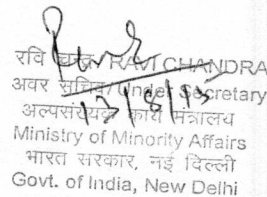 रवि चन्द्र/RAVI CHANDRA
अवर सचिव/Under Secretary
13/8/13
अल्पसंख्यक कार्य मंत्रालय
Ministry of Minority Affairs
भारत सरकार, नई दिल्ली
Govt. of India, New Delhi